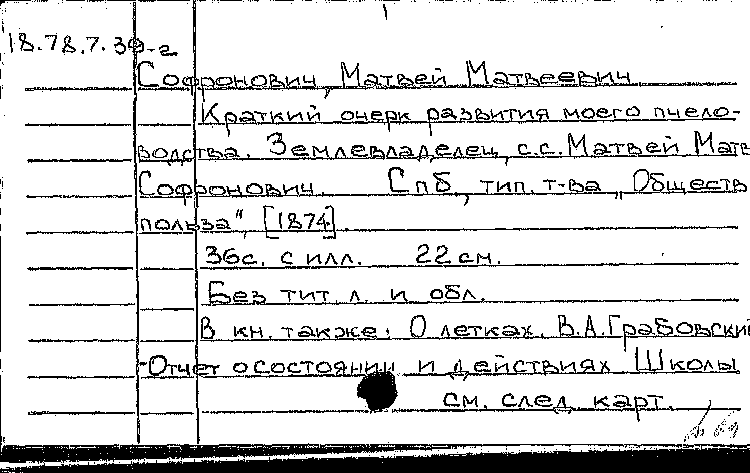 18.78.7.39-г
Софронович, Матвей Матвеевич
Краткий очерк развития моего пчело-
водства. Землевладелец, с.с. Матвей Матв
Софронович. Спб, тип. т-ва „Обществ
польза", [1874].
36с. с илл. 22 см.
Без тит. л. и обл.
В кн. также: О летках. В.А.Грабовский
-Отчет о состоянии и действиях Школы
см. след. карт.